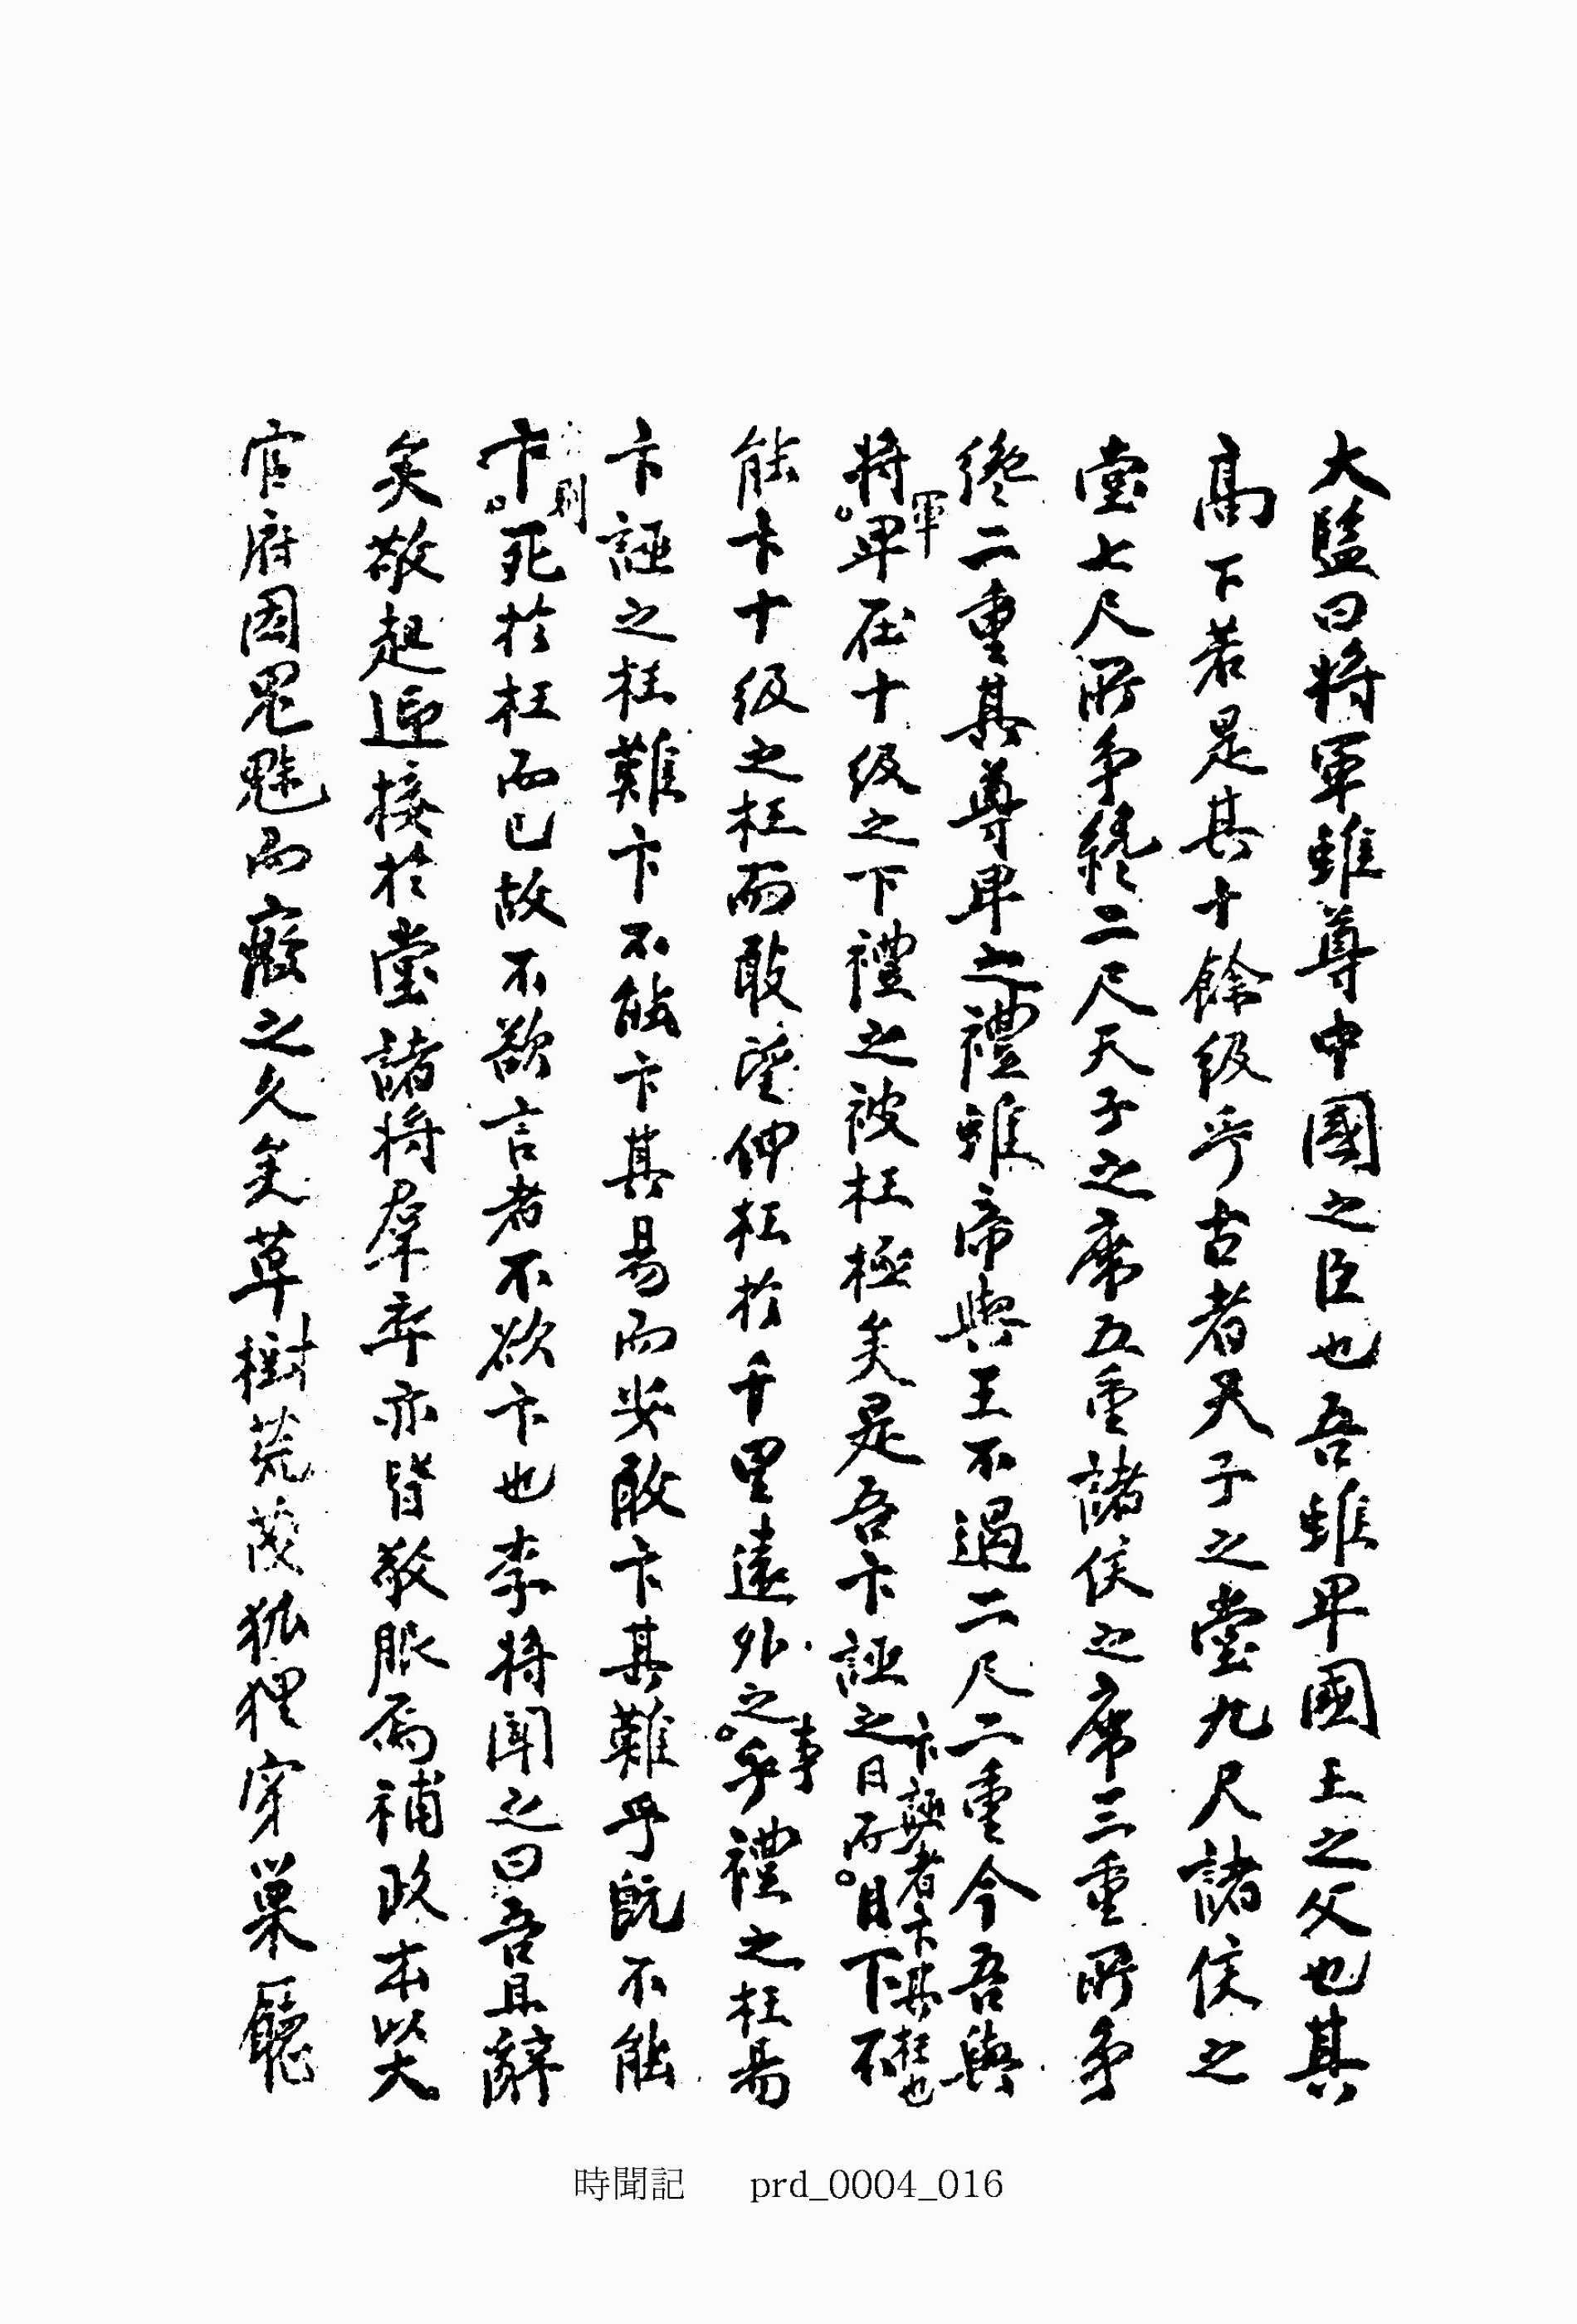 大監曰將軍雖尊中國之臣也吾雖卑國王之父也其
高下若是其十餘級乎古者天子之堂九尺諸侯之
堂七尺所爭纔二尺天子之席五重諸侯之席三重所爭
纔二重其尊卑之禮雖帝與王不過二尺二重今吾與
將軍卑在十級之下禮之被枉極矣是吾卞誣之日而卞誣者卞其枉也目下不
能卞十級之枉而敢望伸枉於千里遠外之事乎禮之枉易
卞誣之枉難卞不能卞其易而安敢卞其難乎旣不能
卞則死於枉而已故不欲言者不欲卞也李將聞之曰吾且辭
矣敬起迎接於堂諸將羣卒亦皆敬服焉補政本以大
官府因鬼魅而廢之久矣草樹荒茂狐狸穿巢廳
時聞記 prd_0004_016